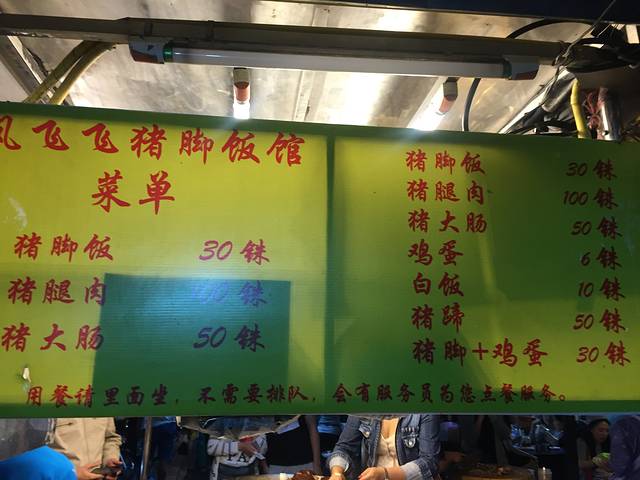 凤飞飞猪脚饭馆
菜单
猪脚饭 30 铢
猪腿肉 100 铢
猪大肠 50 铢
猪脚饭 30 铢
猪腿肉 100 铢
猪大肠 50 铢
鸡蛋 6 铢
白饭 10 铢
猪蹄 50 铢
猪脚+鸡蛋 30 铢
用餐请里面坐，不需要排队，会有服务员为您点餐服务。